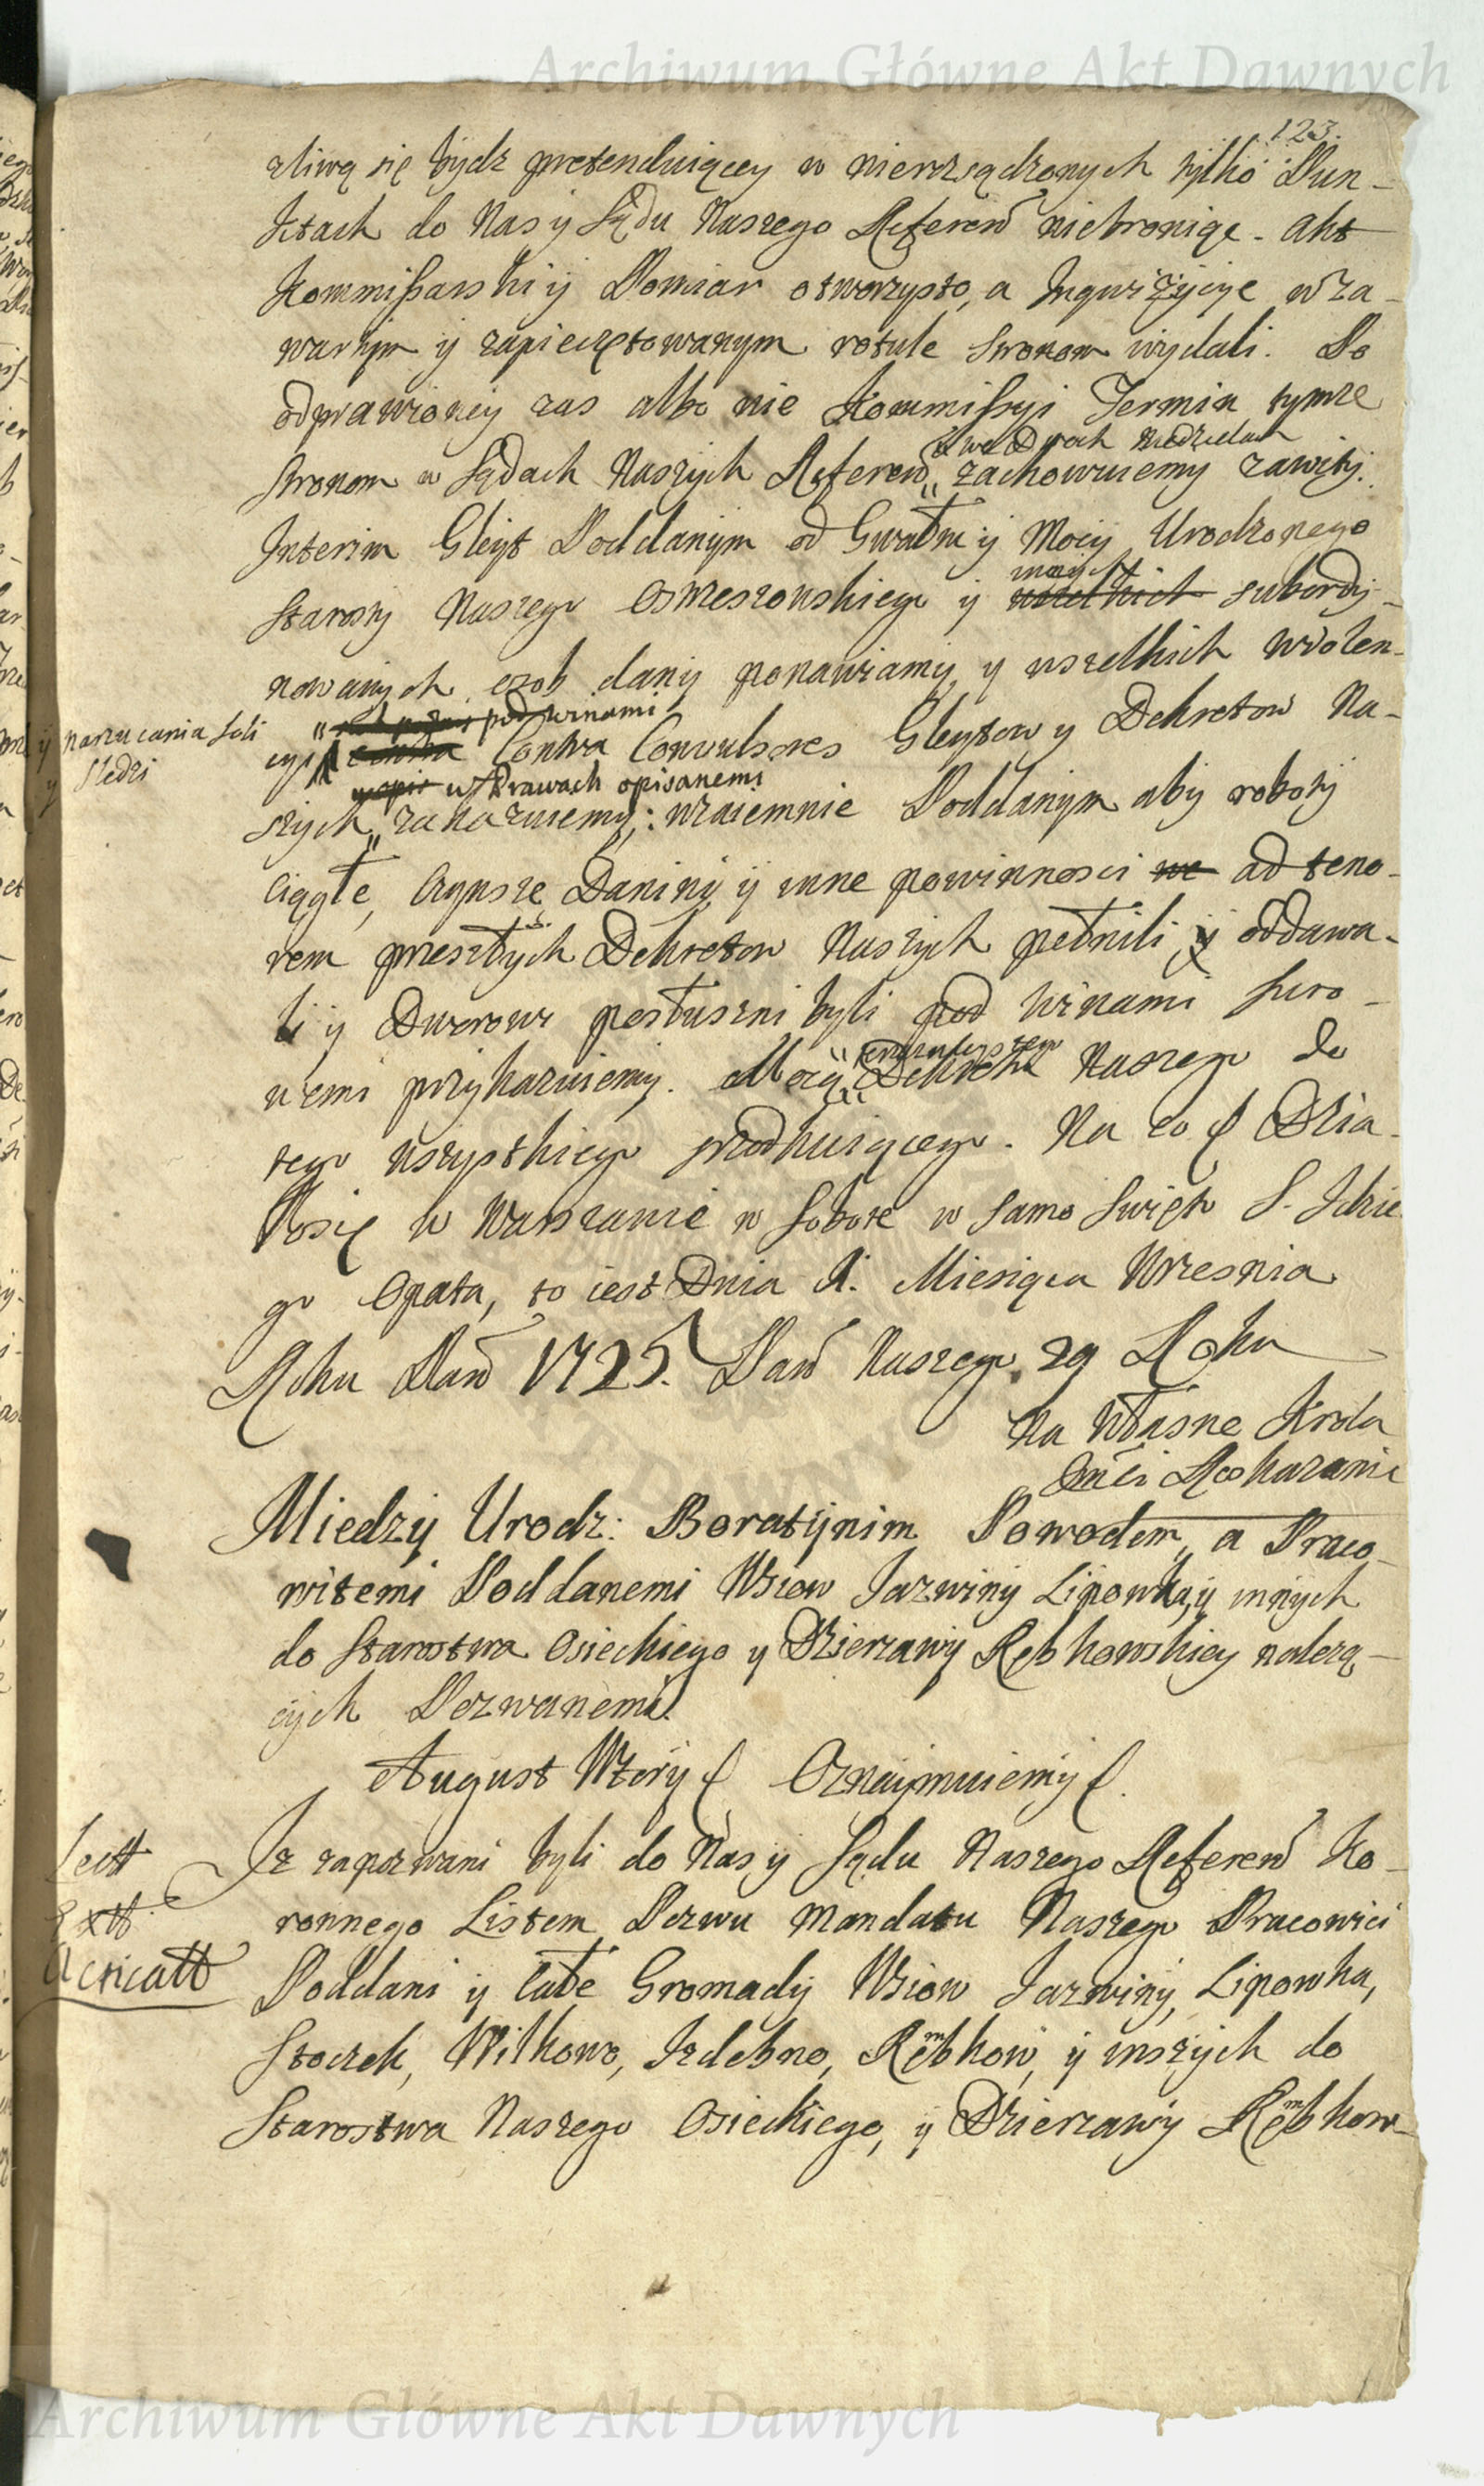 Archiwum Główne Akt Dawnych
123.
zliwą się bydz pretenduiącey w nierozsądzonych tylko Pun-
ktach do Nas y Sądu Naszego Referen̄ niebroniąc. Akt
Kommißarski y Pomiar otworzysto, a Inquizycye w za-
wartym y zapieczętowanym rotule stronom wydali. Po
odprawioney zas albo nie Kommißyi Termin tymze
we Dwoch Niedzielach
stronom w Sądach Naszych Referen̄ zachowuiemy zawity.
Interim Gleyt Poddanym od Gwałtu y Mocy Urodzonego
inszych
Starosty Naszego Osmeszowskiego y wszelkich subordy-
nowanych osob dany ponawiamy y wszelkich wiolen-
pod winami
y narzucania soli
y sledzi
cyi Contra Convulsores Gleytow y Dekretow Na-
w Prawach opisanemi
szych zakazuiemy: wzaiemnie Poddanym aby roboty
Ciągłe, Czynsze Daniny y inne powinnosci we ad teno-
rem przeszłych Dekretow Naszych pełnili y oddawa-
li y Dworowi posłuszni byli pod winami suro-
teraznieyszego
wemi przykazuiemy. Mocą Dekretu Naszego do
tego wszystkiego przodkuiącego. Na co Dzia-
łosię w Warszawie w Sobotę w samo Swięto S. Idzie
go Opata, to iest Dnia 1. Miesiąca Wrzesnia
Roku Pan̄ 1725. Pan̄ Naszego 29 Roku
Na Własne Krola
Jmći Roskazanie
Miedzy Urodz: Boratynim Powodem, a Praco-
witemi Poddanemi Wsiow Jazwiny Lipowka, y innych
do Starostwa Osieckiego y Dzierzawy Rębkowskiey nalezą-
cych Pozwanemi.
August Wtory Oznaymuiemy
Lectt
Extt
Acticatt
Iz zapozwani byli do Nas y Sądu Naszego Referen̄ Ko-
ronnego Listem Pozwu Mandatu Naszego Pracowici
Poddani y Całe Gromady Wsiow Jazwiny, Lipowka,
Stoczek, Wilkowo, Izdebno, Rębkow, y inszych do
Starostwa Naszego Osieckiego, y Dzierzawy Rębkow-
Archiwum Główne Akt Dawnych